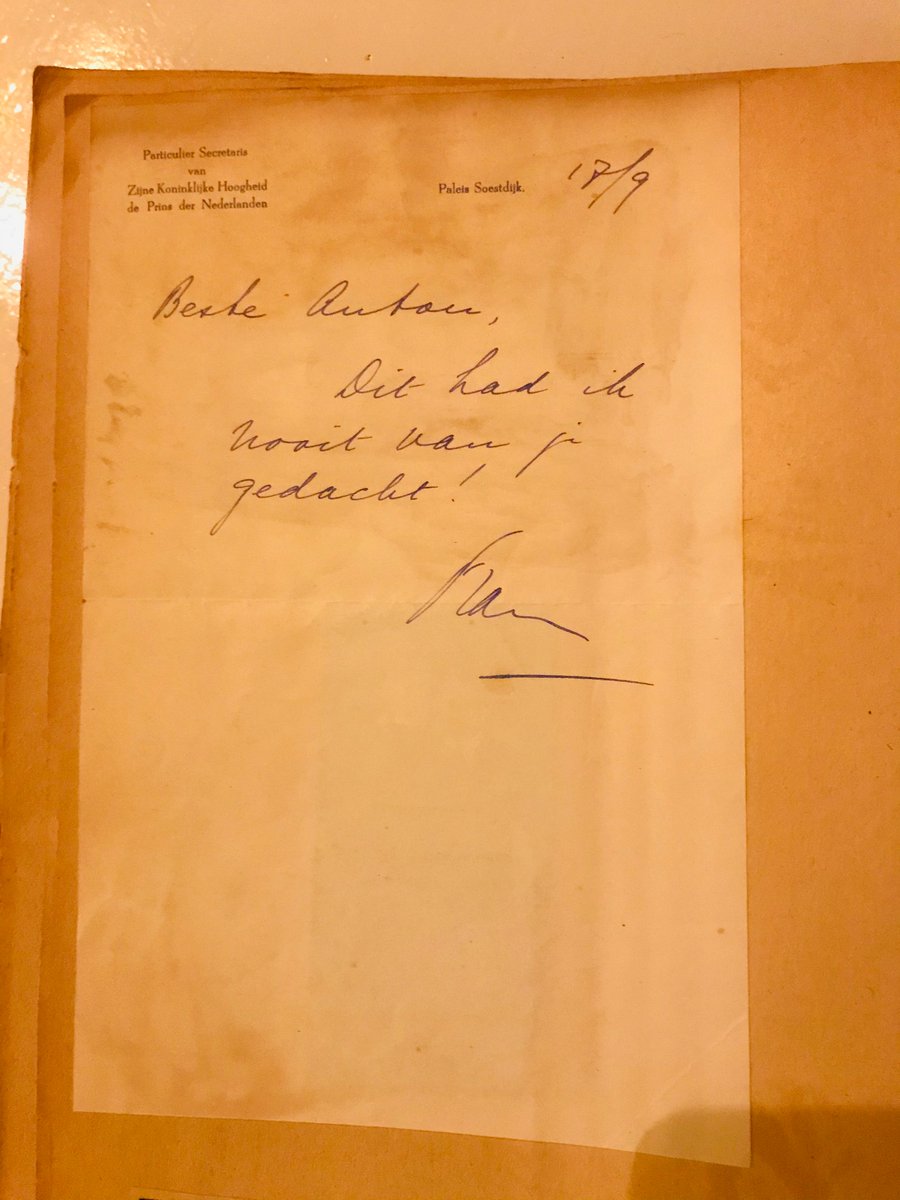 Particulier Secretaris
van
Zijne Koninklijke Hoogheid
de Prins der Nederlanden
Paleis Soestdijk, 17/9
Beste Anton,
Dit had ik
nooit van je
gedacht!